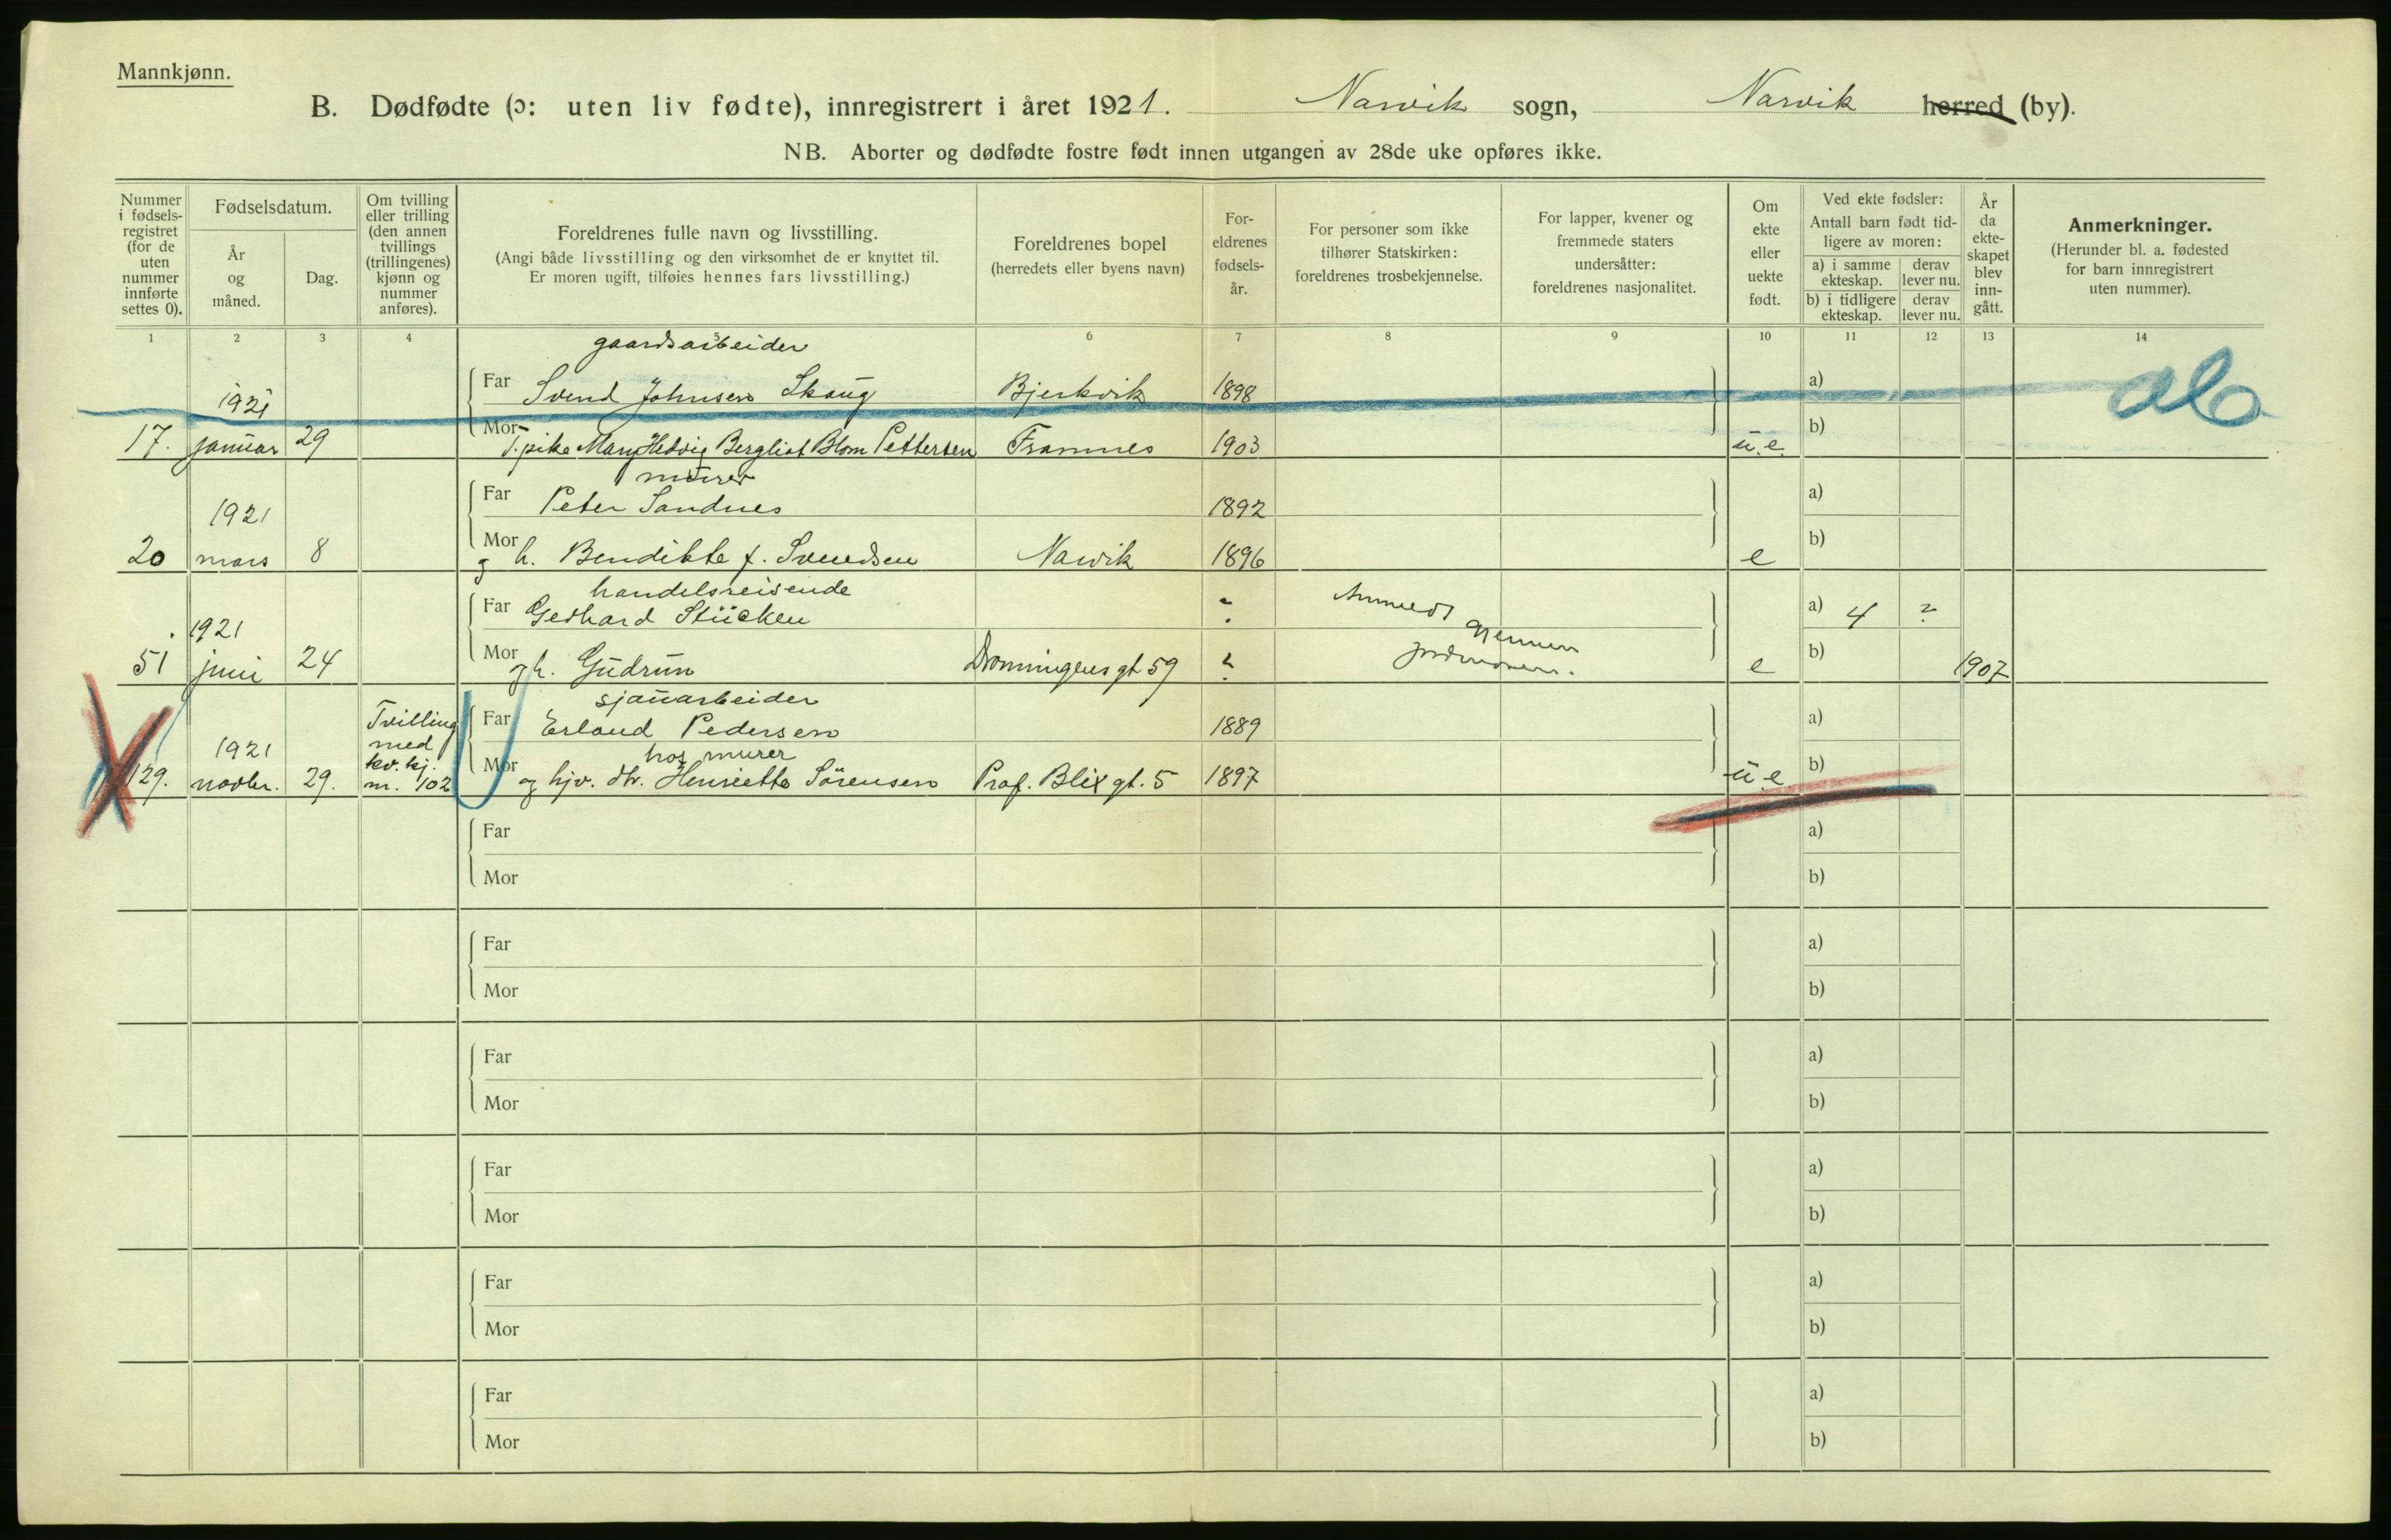 Mannkjønn.
B. Dødfødte (ɔ: uten liv fødte), innregistrert i året 1921. Narvik sogn, Narvik herred (by).
NB. Aborter og dødfødte fostre født innen utgangen av 28de uke opføres ikke.
Nummer
i fødsels-
registret
(for de
uten
nummer
innførte
settes 0).
Fødselsdatum.
År
og
måned.
Dag.
Om tvilling
eller trilling
(den annen
tvillings
(trillingenes)
kjønn og
nummer
anføres).
Foreldrenes fulle navn og livsstilling.
(Angi både livsstilling og den virksomhet de er knyttet til.
Er moren ugift, tilføies hennes fars livsstilling.)
Foreldrenes bopel
(herredets eller byens navn)
For-
eldrenes
fødsels-
år.
For personer som ikke
tilhører Statskirken:
foreldrenes trosbekjennelse.
For lapper, kvener og
fremmede staters
undersåtter:
foreldrenes nasjonalitet.
Om
ekte
eller
uekte
født.
Ved ekte fødsler:
Antall barn født tid-
ligere av moren:
a) i samme
ekteskap.
derav
lever nu.
b) i tidligere
ekteskap.
derav
lever nu.
År
da
ekte-
skapet
blev
inn-
gått.
Anmerkninger.
(Herunder bl. a. fødested
for barn innregistrert
uten nummer).
1 2 3 4 5 6 7 8 9 10 11 12 13 14
gaardsarbeider
Far Svend Johnsen Skaug Bjerkvik 1898 a)
1921
ab
17. januar 29 Mor T.pike Mary Hedvig Bergliot Blom Pettersen Framnes 1903 u.e. b)
murer
Far Peter Sandnes 1892 a)
1921
20 mars 8 Mor g h. Bendikte f. Svendsen Narvik 1896 e b)
handelsreisende
Far Gerhard Stücken ? a) 4 ?
1921
51 juni 24 Mor gh. Gudrun Dronningens gt 59 ? e b) 1907
Anmeldt gjennem
jordmoren.
sjauarbeider
Far Erland Pedersen 1889 a)
1921
Tvilling
med
kv. kj.
nr. 102
hos murer
129. novbr. 29. Mor og hjv. dtr. Henriette Sörensen Prof. Blix gt. 5 1897 u.e. b)
Far a)
Mor b)
Far a)
Mor b)
Far a)
Mor b)
Far a)
Mor b)
Far a)
Mor b)
Far a)
Mor b)